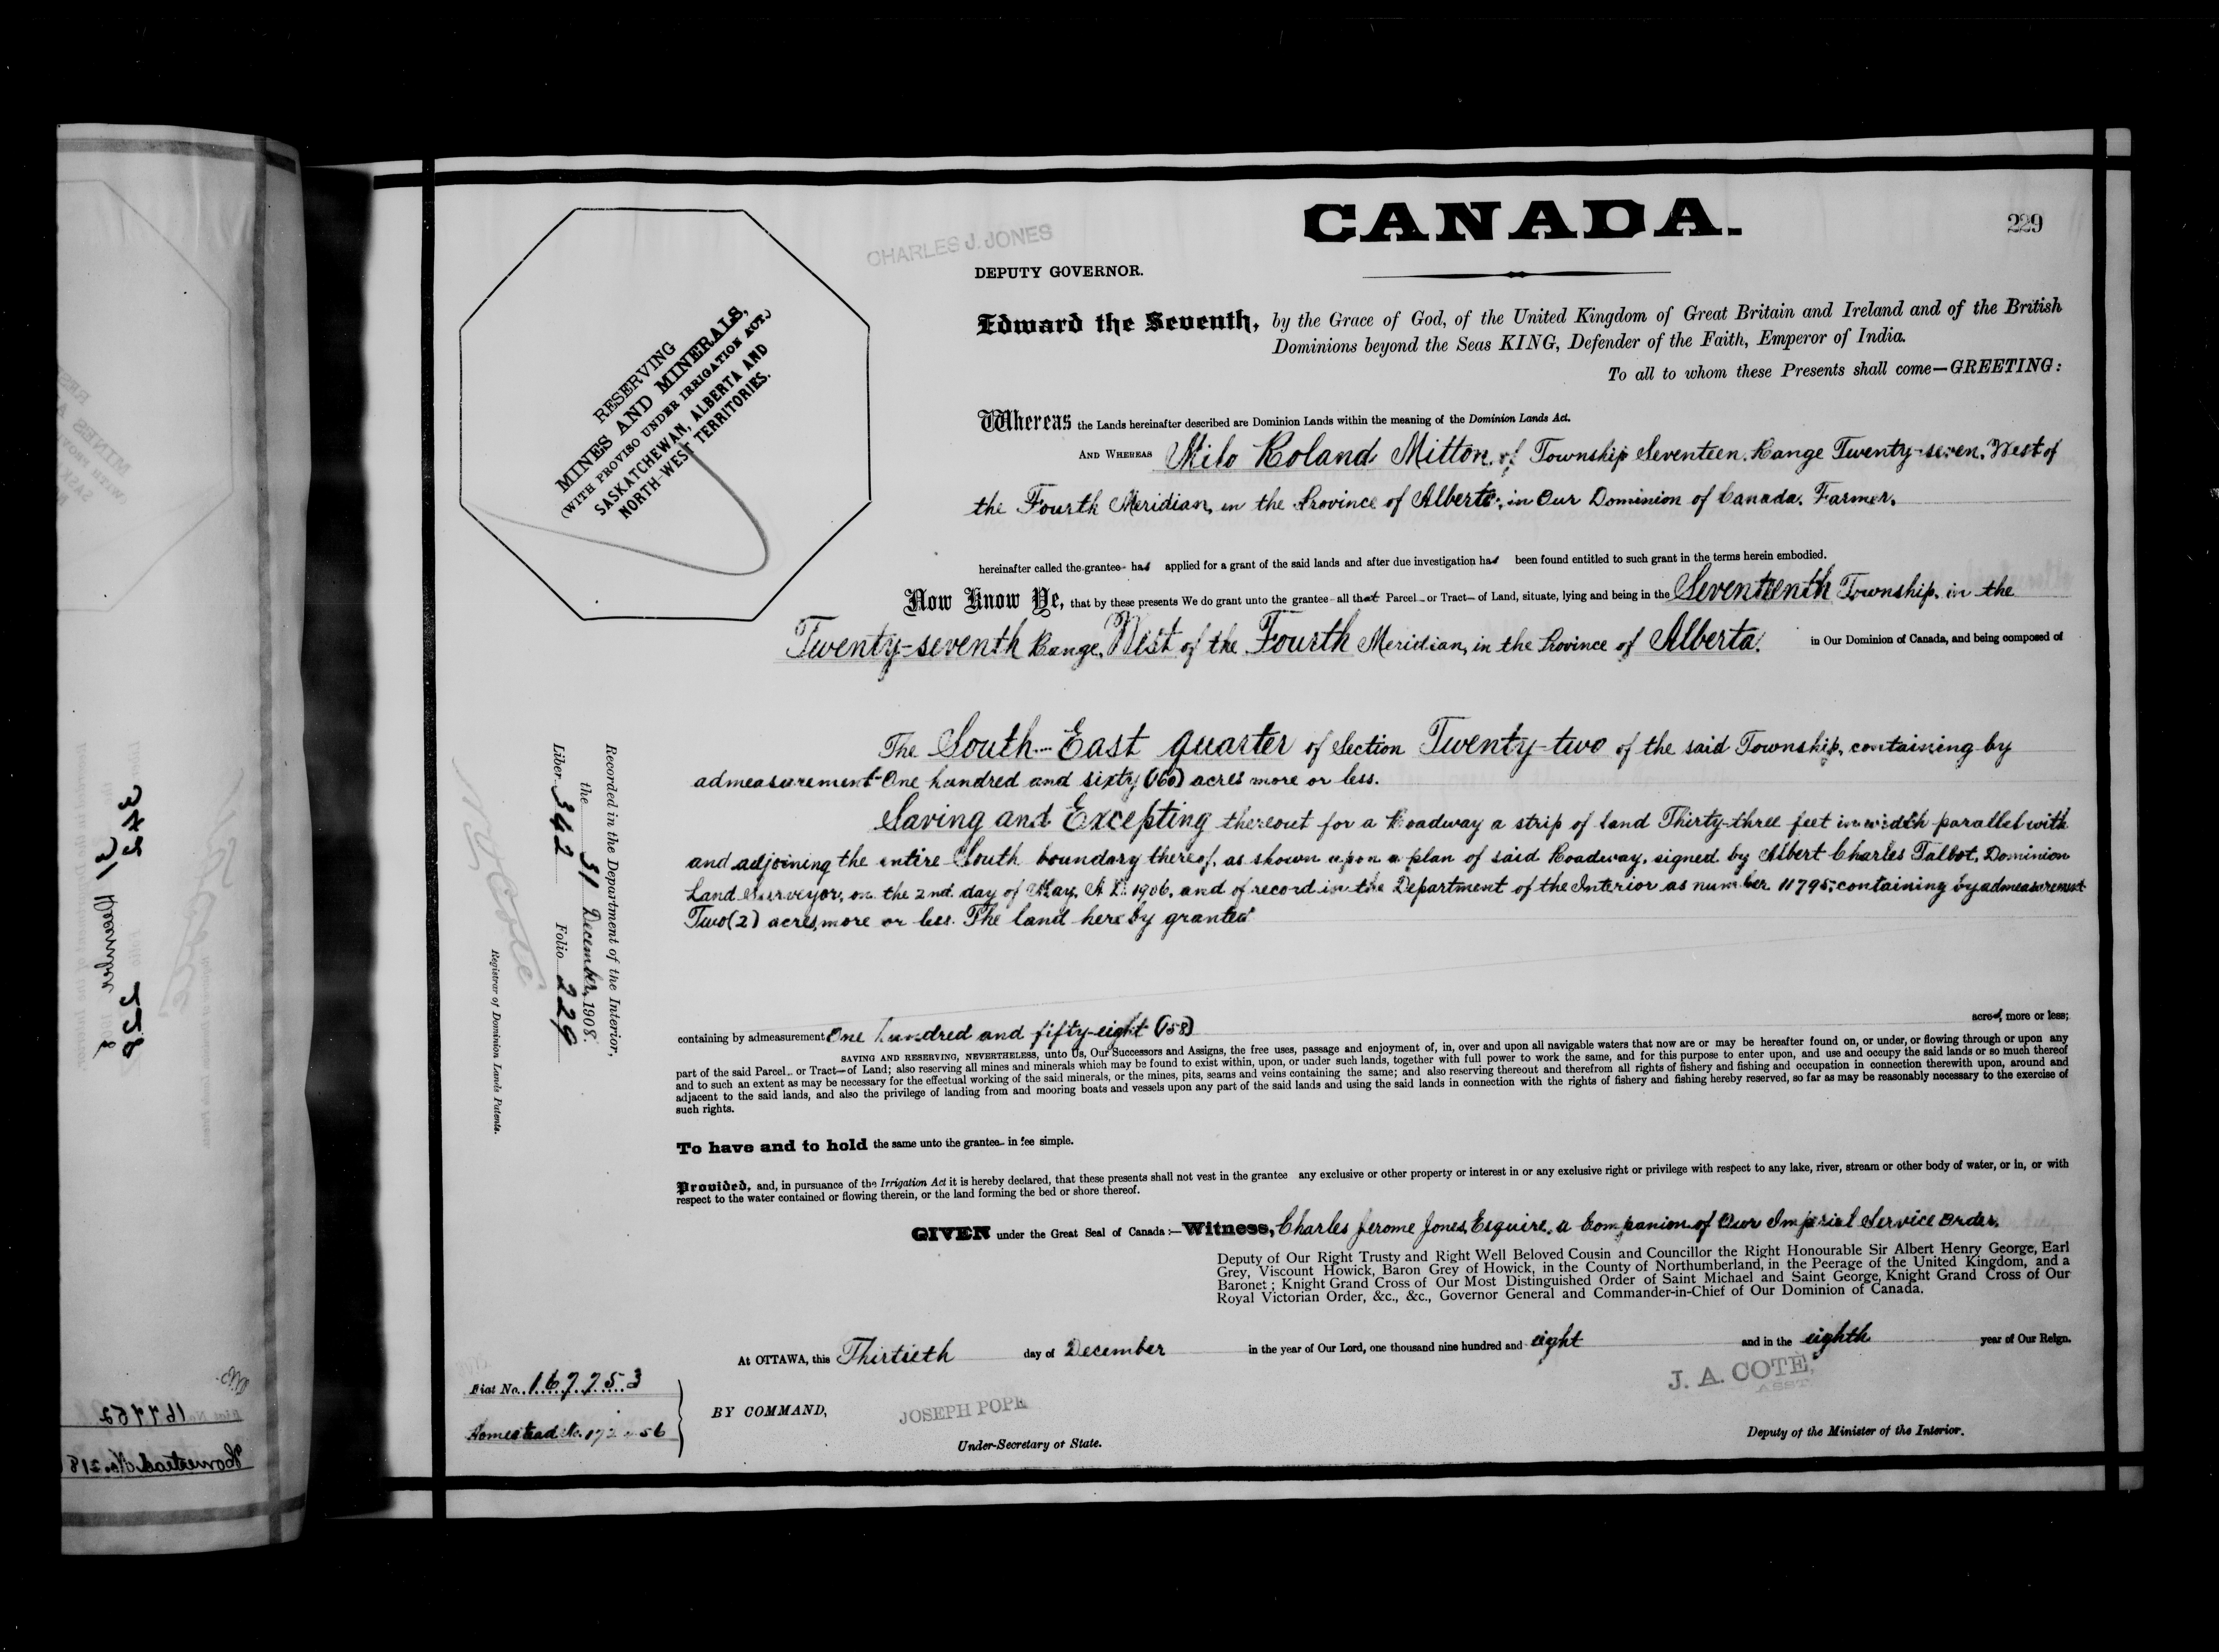 CANADA.
229
CHARLES J. JONES
DEPUTY GOVERNOR.
RESERVING
MINES AND MINERALS,
(WITH PROVISO UNDER IRRIGATION ACT.)
SASKATCHEWAN, ALBERTA AND
NORTH-WEST TERRITORIES.
Edward the Seventh, by the Grace of God, of the United Kingdom of Great Britain and Ireland and of the British
Dominions beyond the Seas KING, Defender of the Faith, Emperor of India.
To all to whom these Presents shall come—GREETING:
Whereas the Lands hereinafter described are Dominion Lands within the meaning of the Dominion Lands Act.
AND WHEREAS Milo Roland Mitton, of Township Seventeen, Range Twenty-seven, West of
the Fourth Meridian, in the Province of Alberta, in Our Dominion of Canada, Farmer,
hereinafter called the grantee has applied for a grant of the said lands and after due investigation has been found entitled to such grant in the terms herein embodied.
Now Know Ye, that by these presents We do grant unto the grantee all that Parcel or Tract of Land, situate, lying and being in the Seventeenth Township, in the
Twenty-seventh Range, West of the Fourth Meridian, in the Province of Alberta, in Our Dominion of Canada, and being composed of
The South-East quarter of Section Twenty-two of the said Township, containing by
admeasurement One hundred and sixty (160) acres more or less.
Saving and Excepting thereout for a Roadway a strip of land Thirty-three feet in width parallel with
and adjoining the entire South boundary thereof, as shown upon a plan of said Roadway, signed by Albert Charles Talbot, Dominion
Land Surveyor, on the 2nd. day of May, A.D. 1906, and of record in the Department of the Interior as number 11795; containing by admeasurement
Two (2) acres, more or less. The land hereby granted
containing by admeasurement One hundred and fifty-eight (158) acres, more or less;
SAVING AND RESERVING, NEVERTHELESS, unto Us, Our Successors and Assigns, the free uses, passage and enjoyment of, in, over and upon all navigable waters that now are or may be hereafter found on, or under, or flowing through or upon any
part of the said Parcel or Tract of Land; also reserving all mines and minerals which may be found to exist within, upon, or under such lands, together with full power to work the same, and for this purpose to enter upon, and use and occupy the said lands or so much thereof
and to such an extent as may be necessary for the effectual working of the said minerals, or the mines, pits, seams and veins containing the same; and also reserving thereout and therefrom all rights of fishery and fishing and occupation in connection therewith upon, around and
adjacent to the said lands, and also the privilege of landing from and mooring boats and vessels upon any part of the said lands and using the said lands in connection with the rights of fishery and fishing hereby reserved, so far as may be reasonably necessary to the exercise of
such rights.
To have and to hold the same unto the grantee in fee simple.
Provided, and, in pursuance of the Irrigation Act it is hereby declared, that these presents shall not vest in the grantee any exclusive or other property or interest in or any exclusive right or privilege with respect to any lake, river, stream or other body of water, or in, or with
respect to the water contained or flowing therein, or the land forming the bed or shore thereof.
GIVEN under the Great Seal of Canada:—Witness, Charles Jerome Jones, Esquire, a Companion of Our Imperial Service Order,
Deputy of Our Right Trusty and Right Well Beloved Cousin and Councillor the Right Honourable Sir Albert Henry George, Earl
Grey, Viscount Howick, Baron Grey of Howick, in the County of Northumberland, in the Peerage of the United Kingdom, and a
Baronet; Knight Grand Cross of Our Most Distinguished Order of Saint Michael and Saint George, Knight Grand Cross of Our
Royal Victorian Order, &c., &c., Governor General and Commander-in-Chief of Our Dominion of Canada.
At OTTAWA, this Thirtieth day of December in the year of Our Lord, one thousand nine hundred and eight and in the eighth year of Our Reign.
J. A. COTE,
ASST.
BY COMMAND,
JOSEPH POPE
Under-Secretary of State.
Deputy of the Minister of the Interior.
Fiat No. 167753
Homestead No.
Recorded in the Department of the Interior,
the 31 December, 1908.
Liber 342 Folio 229
N O Coté
Registrar of Dominion Lands Patents.
342 228
31 December
167752
Homestead No. 218